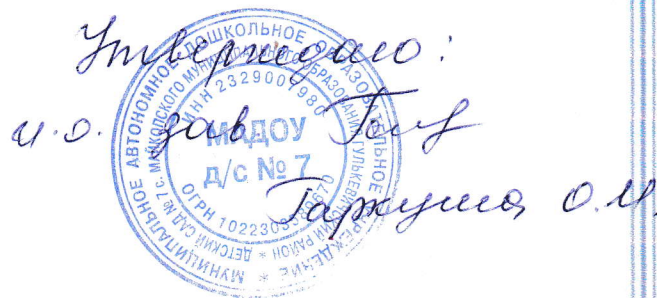 Утверждаю:
и.о. зав
Гаркуша О.И.
МУНИЦИПАЛЬНОЕ АВТОНОМНОЕ ДОШКОЛЬНОЕ ОБРАЗОВАТЕЛЬНОЕ УЧРЕЖДЕНИЕ *
ДЕТСКИЙ САД № 7 с. МАЙКОПСКОГО МУНИЦИПАЛЬНОГО ОБРАЗОВАНИЯ ГУЛЬКЕВИЧСКИЙ РАЙОН *
ИНН 2329007980
МАДОУ
д/с № 7
ОГРН